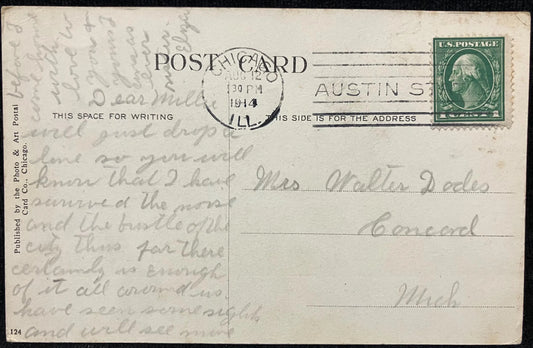 POST CARD
CHICAGO
AUG 12
1 30 PM
1914
ILL.
AUSTIN S
U.S. POSTAGE
1 CENT 1
THIS SPACE FOR WRITING
THIS SIDE IS FOR THE ADDRESS
Published by the Photo & Art Postal
Card Co., Chicago.
124
Dear Millie
will just drop a
line so you will
know that I have
survived the noise
and the bustle of the
city thus far there
certainly is enough
of it all around us
have seen some sights
and will see more
before I
come home
with
love to
you &
yours
as
ever
Mrs Walter Dodes
Concord
Mich